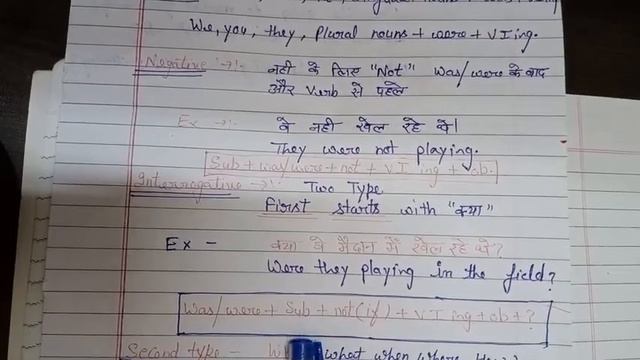 We, you, they, Plural nouns + were + V I ing.
Negative → :- नही के लिए "Not" was/were के बाद
और Verb से पहले
Ex → :- वे नही खेल रहे थे।
They were not playing.
Sub + was/were + not + V I ing + ob.
Interrogative → :- Two Type
First starts with "क्या"
Ex - क्या वे मैदान में खेल रहे थे?
Were they playing in the field?
Was/were + Sub + not (if) + V I ing + ob + ?
Second type - what when where